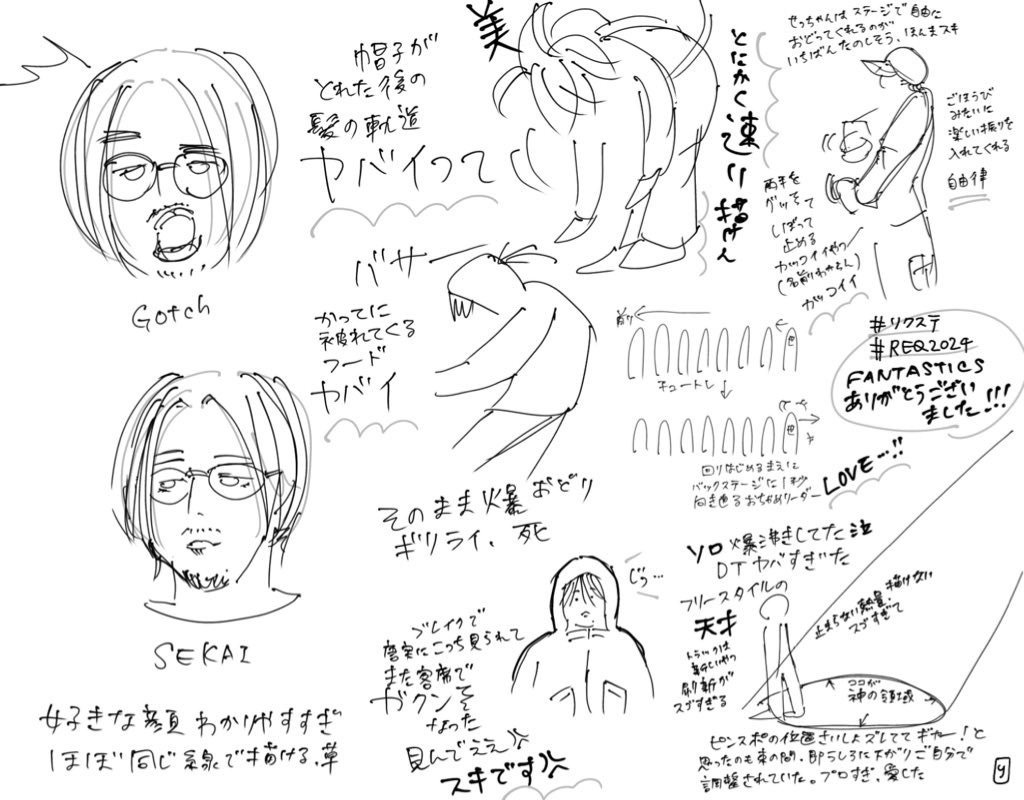 Gotch
SEKAI
好きな顔わかりやすすぎ
ほぼ同じ線で描ける、草
帽子が
とれた後の
髪の軌道
ヤバイって
美
とにかく速い!!描けん
バサー
かってに
被れてくる
フード
ヤバイ
そのまま爆おどり
ギリライ、死
せっちゃんはステージで自由に
おどってくれるのが
いちばんたのしそう、ほんまスキ
ごほうび
みたいに
楽しい振りを
入れてくれる
自由律
両手を
グッて
しぼって
止める
カッコイイやつ
(名前わからん)
ガッコイイ
#リクステ
#REQ2024
FANTASTICS
ありがとうござい
ました!!!
前
チュートし
回りはじめるまえに
バックステージに1秒
向き直るおちゃめリーダー
LOVE…!!
ブレイクで
確実にこっち見られて
また客席で
ガクンと
なった
見んでええ
スキです
じっ…
ソロ爆沸きしてた泣
DTヤバすぎた
フリースタイルの
天才
トラックは
新しいやつ
刷新が
スゴすぎる
止まらない熱量、描けない
スゴすぎて
ココが
神の領域
ピンスポの位置さいしょズレててギャー!と
思ったのも束の間、即うしろに下がりご自分で
調整されていた。プロすぎ、愛した
y